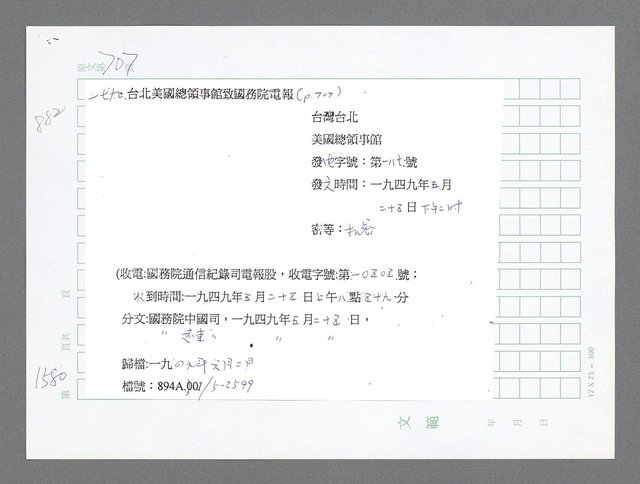 原文第707頁
882
一七九.台北美國總領事館致國務院電報(p.707)
台灣台北
美國總領事館
發電字號：第一八七號
發文時間：一九四九年五月
二十五日下午二時
密等：機密
(收電:國務院通信紀錄司電報股，收電字號:第一〇五〇五號；
收到時間:一九四九年五月二十五日上午八點五十九分
分文:國務院中國司，一九四九年五月二十五日，
〃 〃 〃
歸檔:一九四九年六月二日
檔號：894A.00/5-2549
1580
第 頁共 頁
12 X 25 = 300
文範
年 月 日